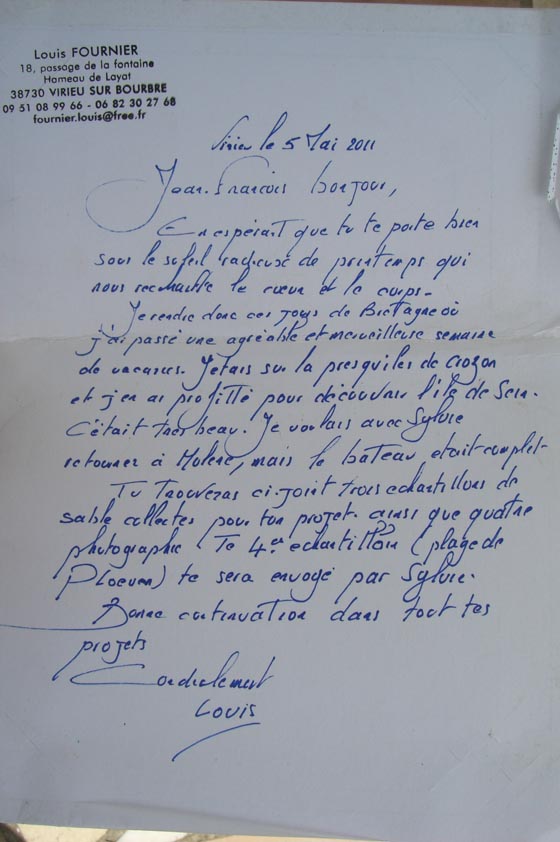 Louis FOURNIER
18, passage de la fontaine
Hameau de Layat
38730 VIRIEU SUR BOURBRE
09 51 08 99 66 - 06 82 30 27 68
fournier.louis@free.fr
Virieu le 5 Mai 2011
Jean-François bonjour,
En espérant que tu te porte bien
sous le soleil radieuse de printemps qui
nous rechauffe le cœur et le corps-
Je rendre donc ces jours de Bretagne où
j'ai passé une agréable et merveilleuse semaine
de vacances. J'etais sur la presqu'iles de Crozon
et j'en ai profitté pour découvrir l'île de Sein.
C'était tres beau. Je voulais avec Sylvie
retourner à Molene, mais le bateau etait complet-
Tu trouveras ci-joint trois echantillons de
sable collectes pour ton projet. ainsi que quatre
photographie. Le 4er echantillon (plage de
Ploeven) te sera envoyé par Sylvie.
Bonne continuation dans tout tes
projets
Cordialement
Louis